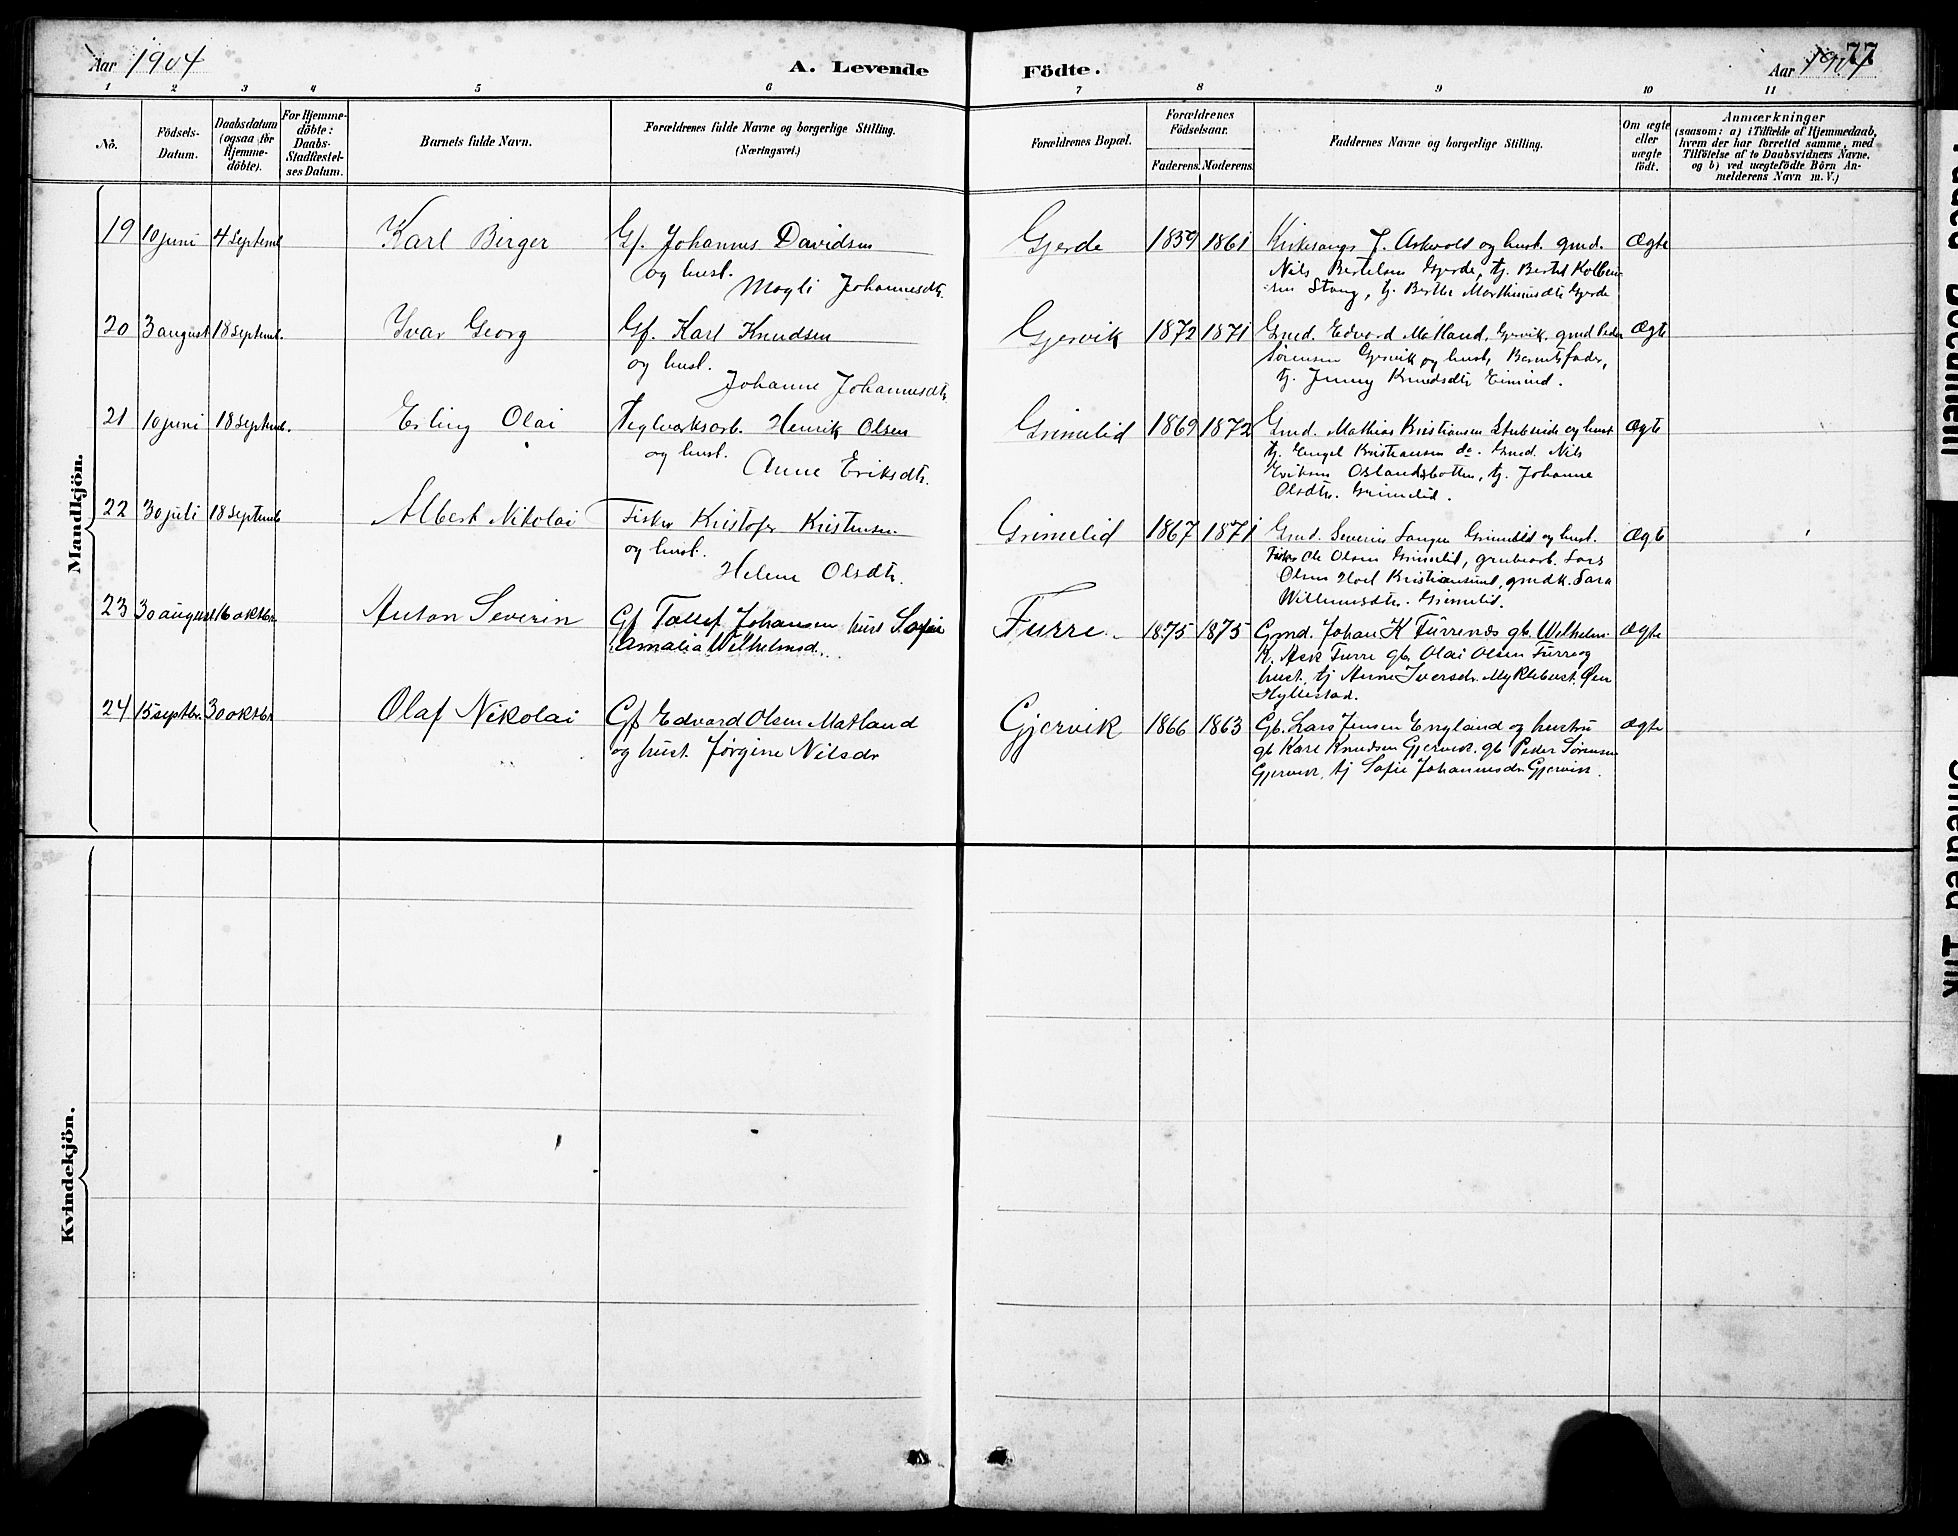 Aar 1904
A. Levende Födte.
Aar 1904 77
1 2 3 4 5 6 7 8 9 10 11
No.
Födsels-
Datum.
Daabsdatum
(ogsaa för
Hjemme-
döbte).
For Hjemme-
döbte:
Daabs-
Stadfæstel-
ses Datum.
Barnets fulde Navn.
Forældrenes fulde Navne og borgerlige Stilling.
(Næringsvei.)
Forældrenes Bopæl.
Forældrenes
Födselsaar.
Faderens. Moderens.
Faddernes Navne og borgerlige Stilling.
Om ægte
eller
uægte
födt.
Anmærkninger
(saasom: a) i Tilfælde af Hjemmedaab,
hvem der har forrettet samme, med
Tilföielse af to Daabsvidners Navne,
og b) ved uægtefödte Börn An-
melderens Navn m. V.)
Mandkjön.
19 10 juni 4 Septemb Karl Birger Gf. Johannes Davidsen Gjerde 1859 1861 Kirkesangr J. Askvold og hust. gmd. Ægte
og hust. Nils Bertelsen Gjerde, tj. Bertel Kolbein
Magli Johannesdtr. sen Stang, tj. Berthe Marthinusdtr Gjerde
20 3 august 18 Septemb. Ivar Georg Gf. Karl Knudsen Gjervik 1872 1871 Gmd. Edvard Matland, Gjervik, gmd Peder Ægte
og hust. Sørensen Gjervik og hust, Barnets fader,
Johanne Johannesdtr. tj. Jenny Knudsdtr Eimind.
21 10 juni 18 Septemb. Erling Olai Teglværksarb. Henrik Olsen Grimelid 1869 1872 Gmd. Mathias Kristiansen Stubseide og hust Ægte
og hust. tj. Engel Kristiansen do. Gmd. Nils
Anne Eriksdtr. Eriksen Oslandsbotten, tj. Johanne
Olsdtr. Grimelid.
22 30 juli 18 Septemb Albert Nikolai Fisker Kristofer Kristensen Grimelid 1867 1871 Gmd. Severin Grimelid og hust. Ægte
og hust. Fisker Ole Olsen Grimelid, grubearb. Lars
Helene Olsdtr. Olsen Hoel Kristiansund, gmdk. Sara
Willumsdtr. Grimelid.
23 30 august 16 oktbr. Anton Severin Gf Tollef Johansen hust Sofie Furre. 1875 1875 Gmd. Johan K Furrenæs gb. Wilhelm Ægte
Amalia Wilhelmsd. K. Ask Furre gbr Olai Olsen Furre og
hust, tj Anne Iversdr. Myklebust. Øen
Hyllestad.
24 15 septbr. 30 oktbr Olaf Nikolai Gf Edvard Olsen Matland Gjervik 1866 1863 Gb. Lars Jensen England og hustru Ægte
og hust. Jørgine Nilsdr gb Karl Knudsen Gjervik. gb Peder Sørensen
Gjervik, tj Sofie Johannesdr. Gjervik.
Kvindekjön.